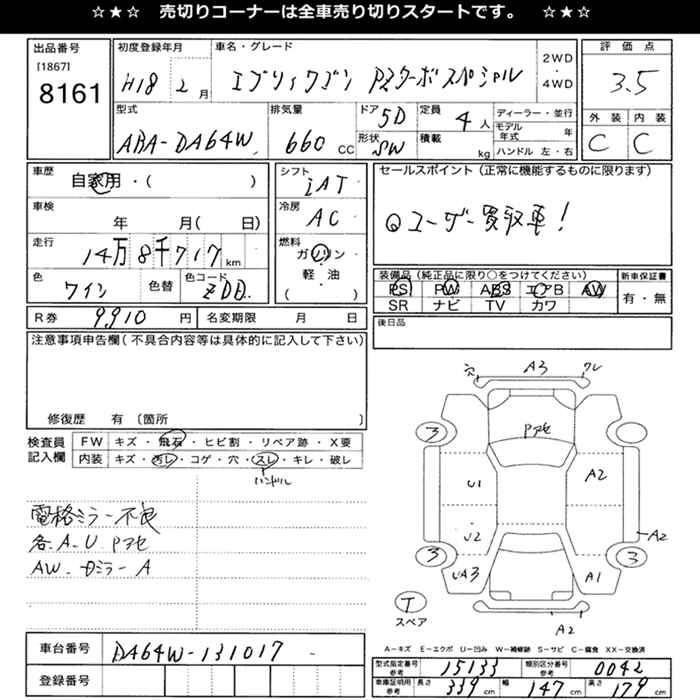 ☆★☆ 売切りコーナーは全車売り切りスタートです。 ☆★☆
出品番号
[1867]
8161
初度登録年月
H18 2月
車名・グレード
エブリィワゴン PZターボスペシャル
2WD
・
4WD
評価点
3.5
外装 内装
C C
型式
ABA-DA64W
排気量
660 CC
ドア 5D
形状 SW
定員 4人
積載 kg
ディーラー・並行
モデル年式 年
ハンドル 左・右
車歴
自家用・( )
シフト
iAT
セールスポイント(正常に機能するものに限ります)
◎ユーザー買取車!
車検
年 月( 日)
冷房
AC
走行
14万8千717km
燃料
ガソリン
・
軽・油
( )
色
ワイン
色替
色コード
ZDD
装備品(純正品に限り○をつけてください)
PS PW ABS エアB AW
SR ナビ TV カワ
新車保証書
有・無
R券 9,910 円
名変期限 月 日
後日品
注意事項申告欄(不具合内容等は具体的に記入して下さい)
修復歴 有 〔箇所 〕
検査員
記入欄
FW キズ・飛石・ヒビ割・リペア跡・X要
内装 キズ・汚レ・コゲ・穴・スレ・キレ・破レ
ハンドル
電格ミラー不良
各-A-U Pアセ
AW-ドミラーA
穴 A3 ワレ
Pアセ
3
U1 A2
U2 A2
3 3
UA3 A1
T
スペア
A2
車台番号 DA64W-131017
登録番号
A-キズ E-エクボ U-凹み W-補修跡 S-サビ C-腐食 XX-交換済
型式指定番号 参考 15133
類別区分番号 参考 0042
車庫証明用 参考 長さ 339 cm 幅 147 cm 高さ 179 cm